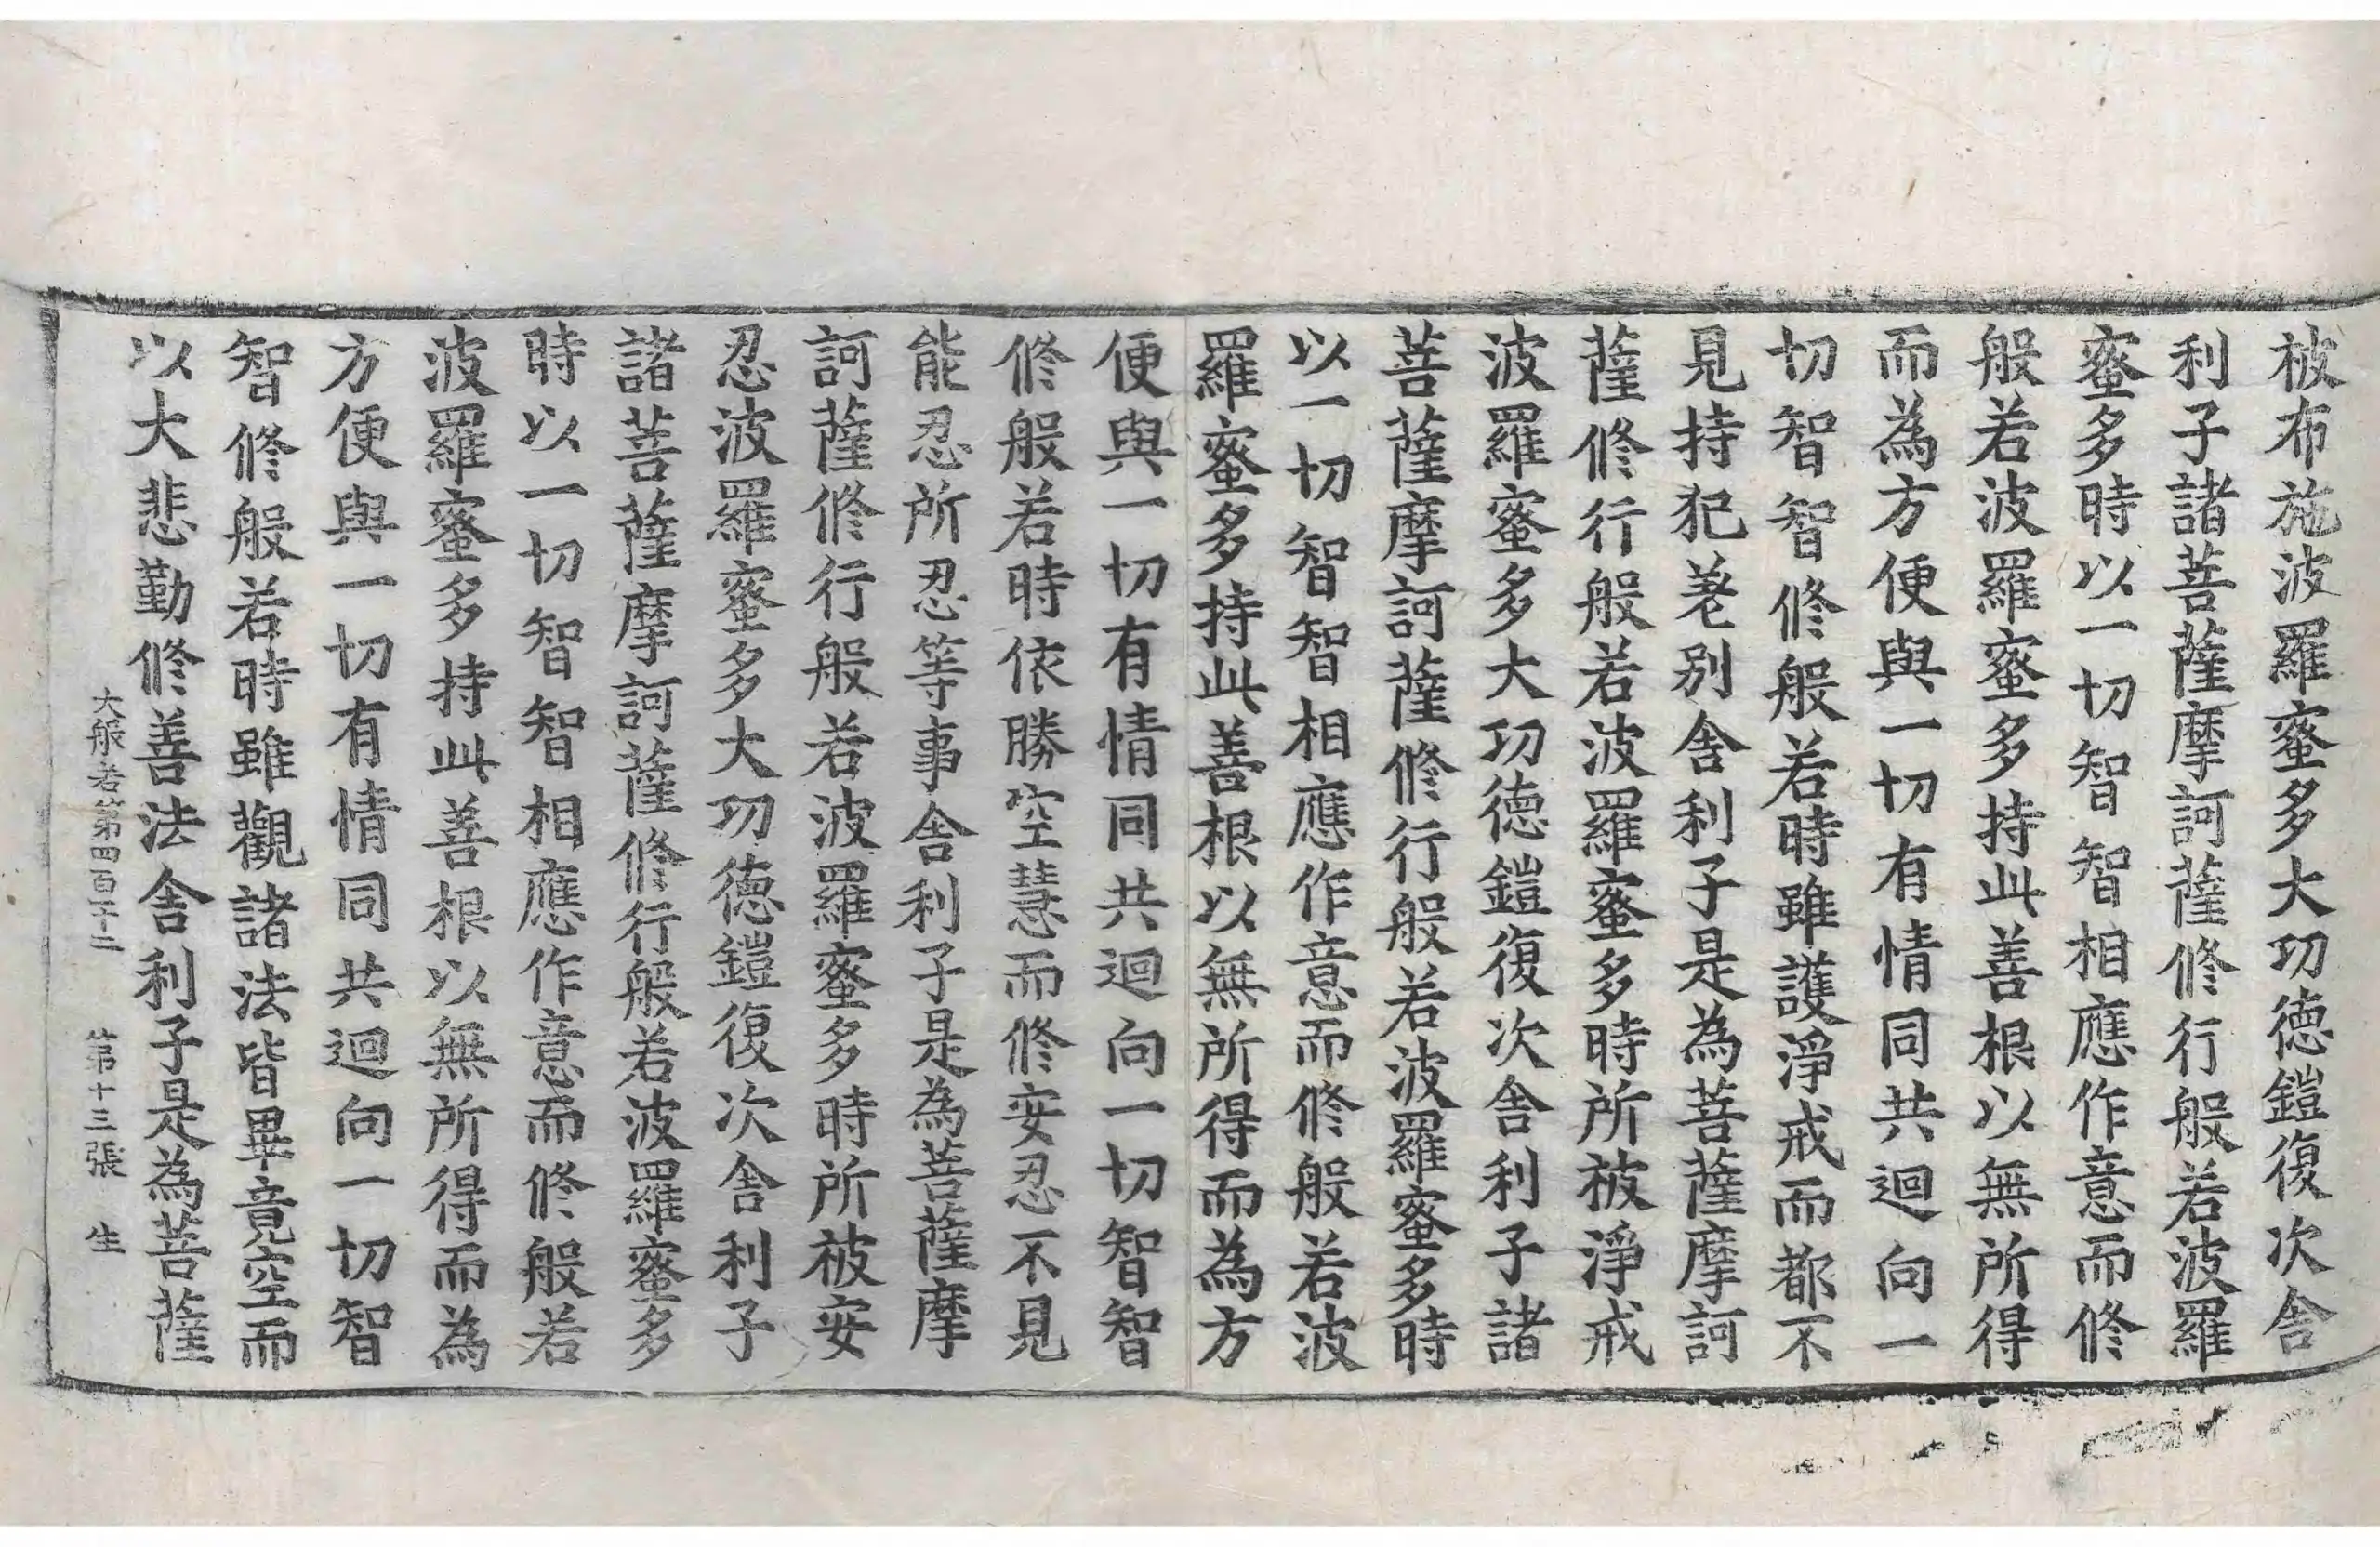 被布施波羅蜜多大功德鎧復次舍
利子諸菩薩摩訶薩修行般若波羅
蜜多時以一切智智相應作意而修
般若波羅蜜多持此善根以無所得
而為方便與一切有情同共迴向一
切智智修般若時雖護淨戒而都不
見持犯差別舍利子是為菩薩摩訶
薩修行般若波羅蜜多時所被淨戒
波羅蜜多大功德鎧復次舍利子諸
菩薩摩訶薩修行般若波羅蜜多時
以一切智智相應作意而修般若波
羅蜜多持此善根以無所得而為方
便與一切有情同共迴向一切智智
修般若時依勝空慧而修安忍不見
能忍所忍等事舍利子是為菩薩摩
訶薩修行般若波羅蜜多時所被安
忍波羅蜜多大功德鎧復次舍利子
諸菩薩摩訶薩修行般若波羅蜜多
時以一切智智相應作意而修般若
波羅蜜多持此善根以無所得而為
方便與一切有情同共迴向一切智
智修般若時雖觀諸法皆畢竟空而
以大悲勤修善法舍利子是為菩薩
大般若第四百十二 第十三張 生